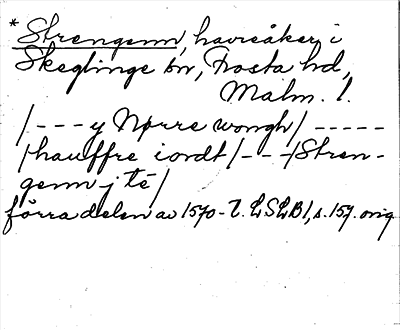 * Strengenn, havreåker i
Skeglinge by, Frosta hd,
Malm. l.
/ - - - y Nørre wongh / - - - - -
/ hauffre iordt / - - - / Stren-
genn j té /
förra delen av 1570-t. LSLB 1, s. 157. orig